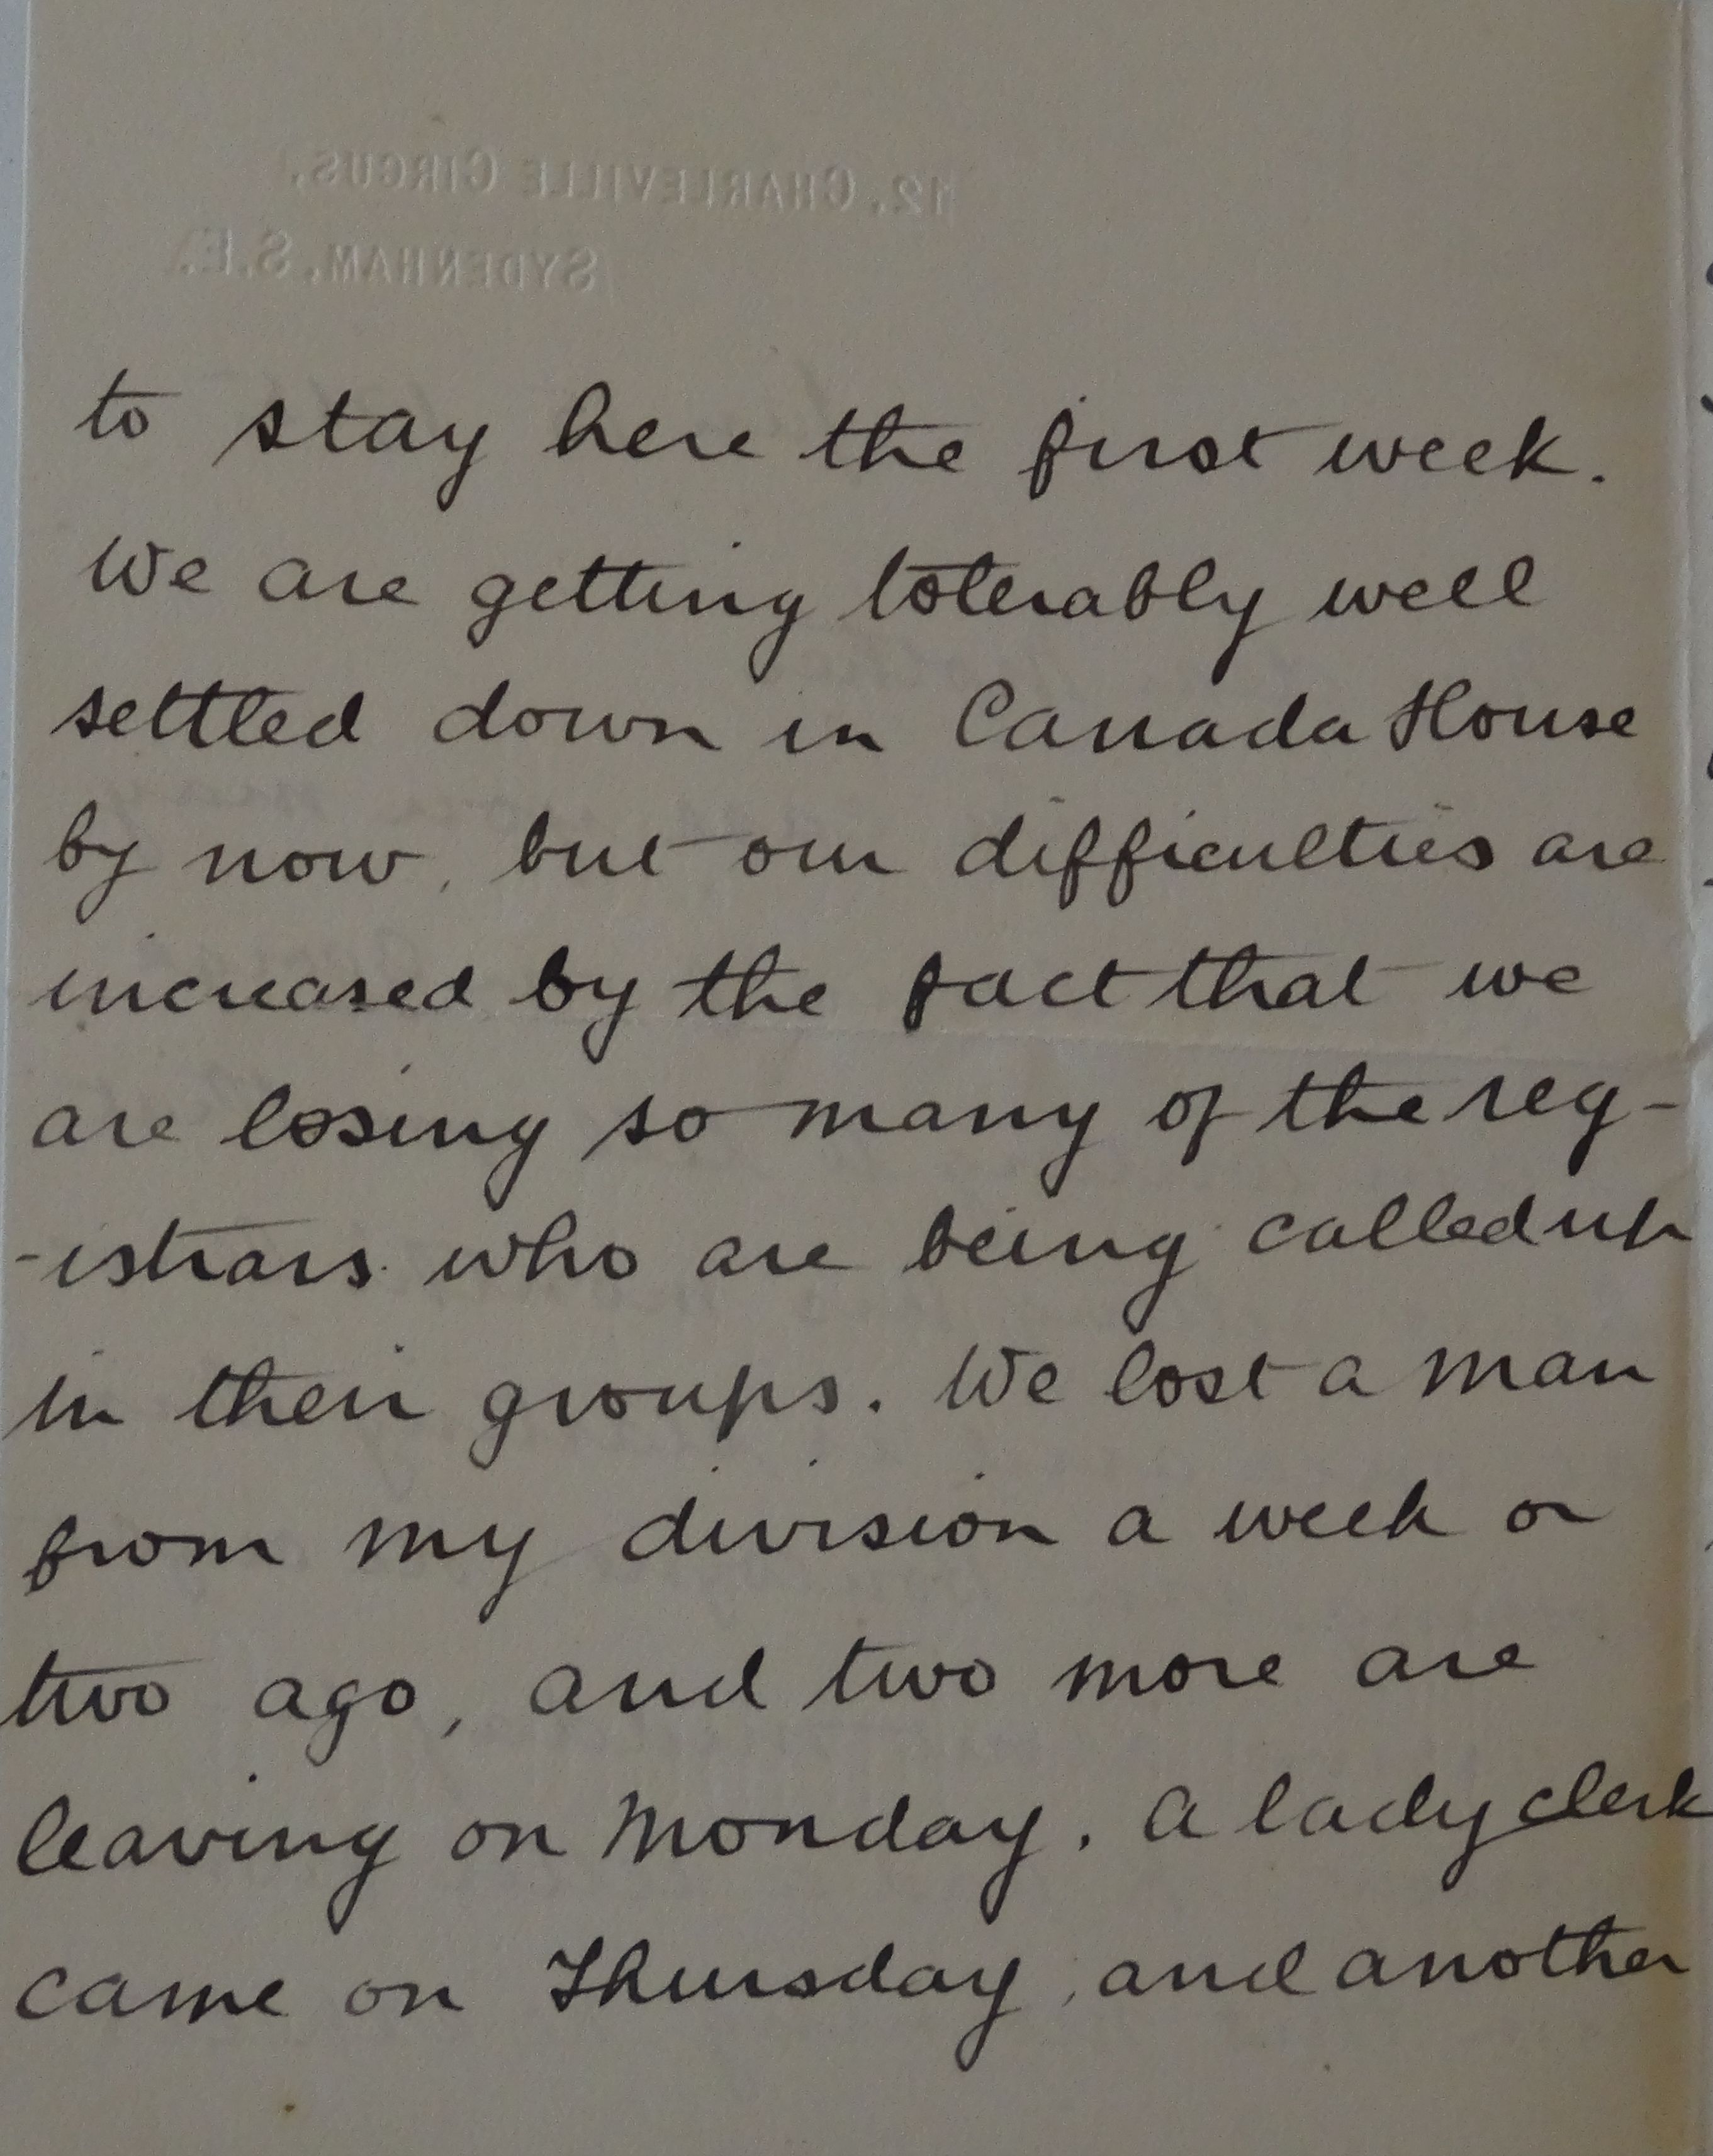 12, CHARLEVILLE CIRCUS,
SYDENHAM, S.E.
to stay here the first week.
We are getting tolerably well
settled down in Canada House
by now, but our difficulties are
increased by the fact that we
are losing so many of the reg-
-istrars who are being called up
in their groups. We lost a man
from my division a week or
two ago, and two more are
leaving on Monday. A lady clerk
came on Thursday, and another